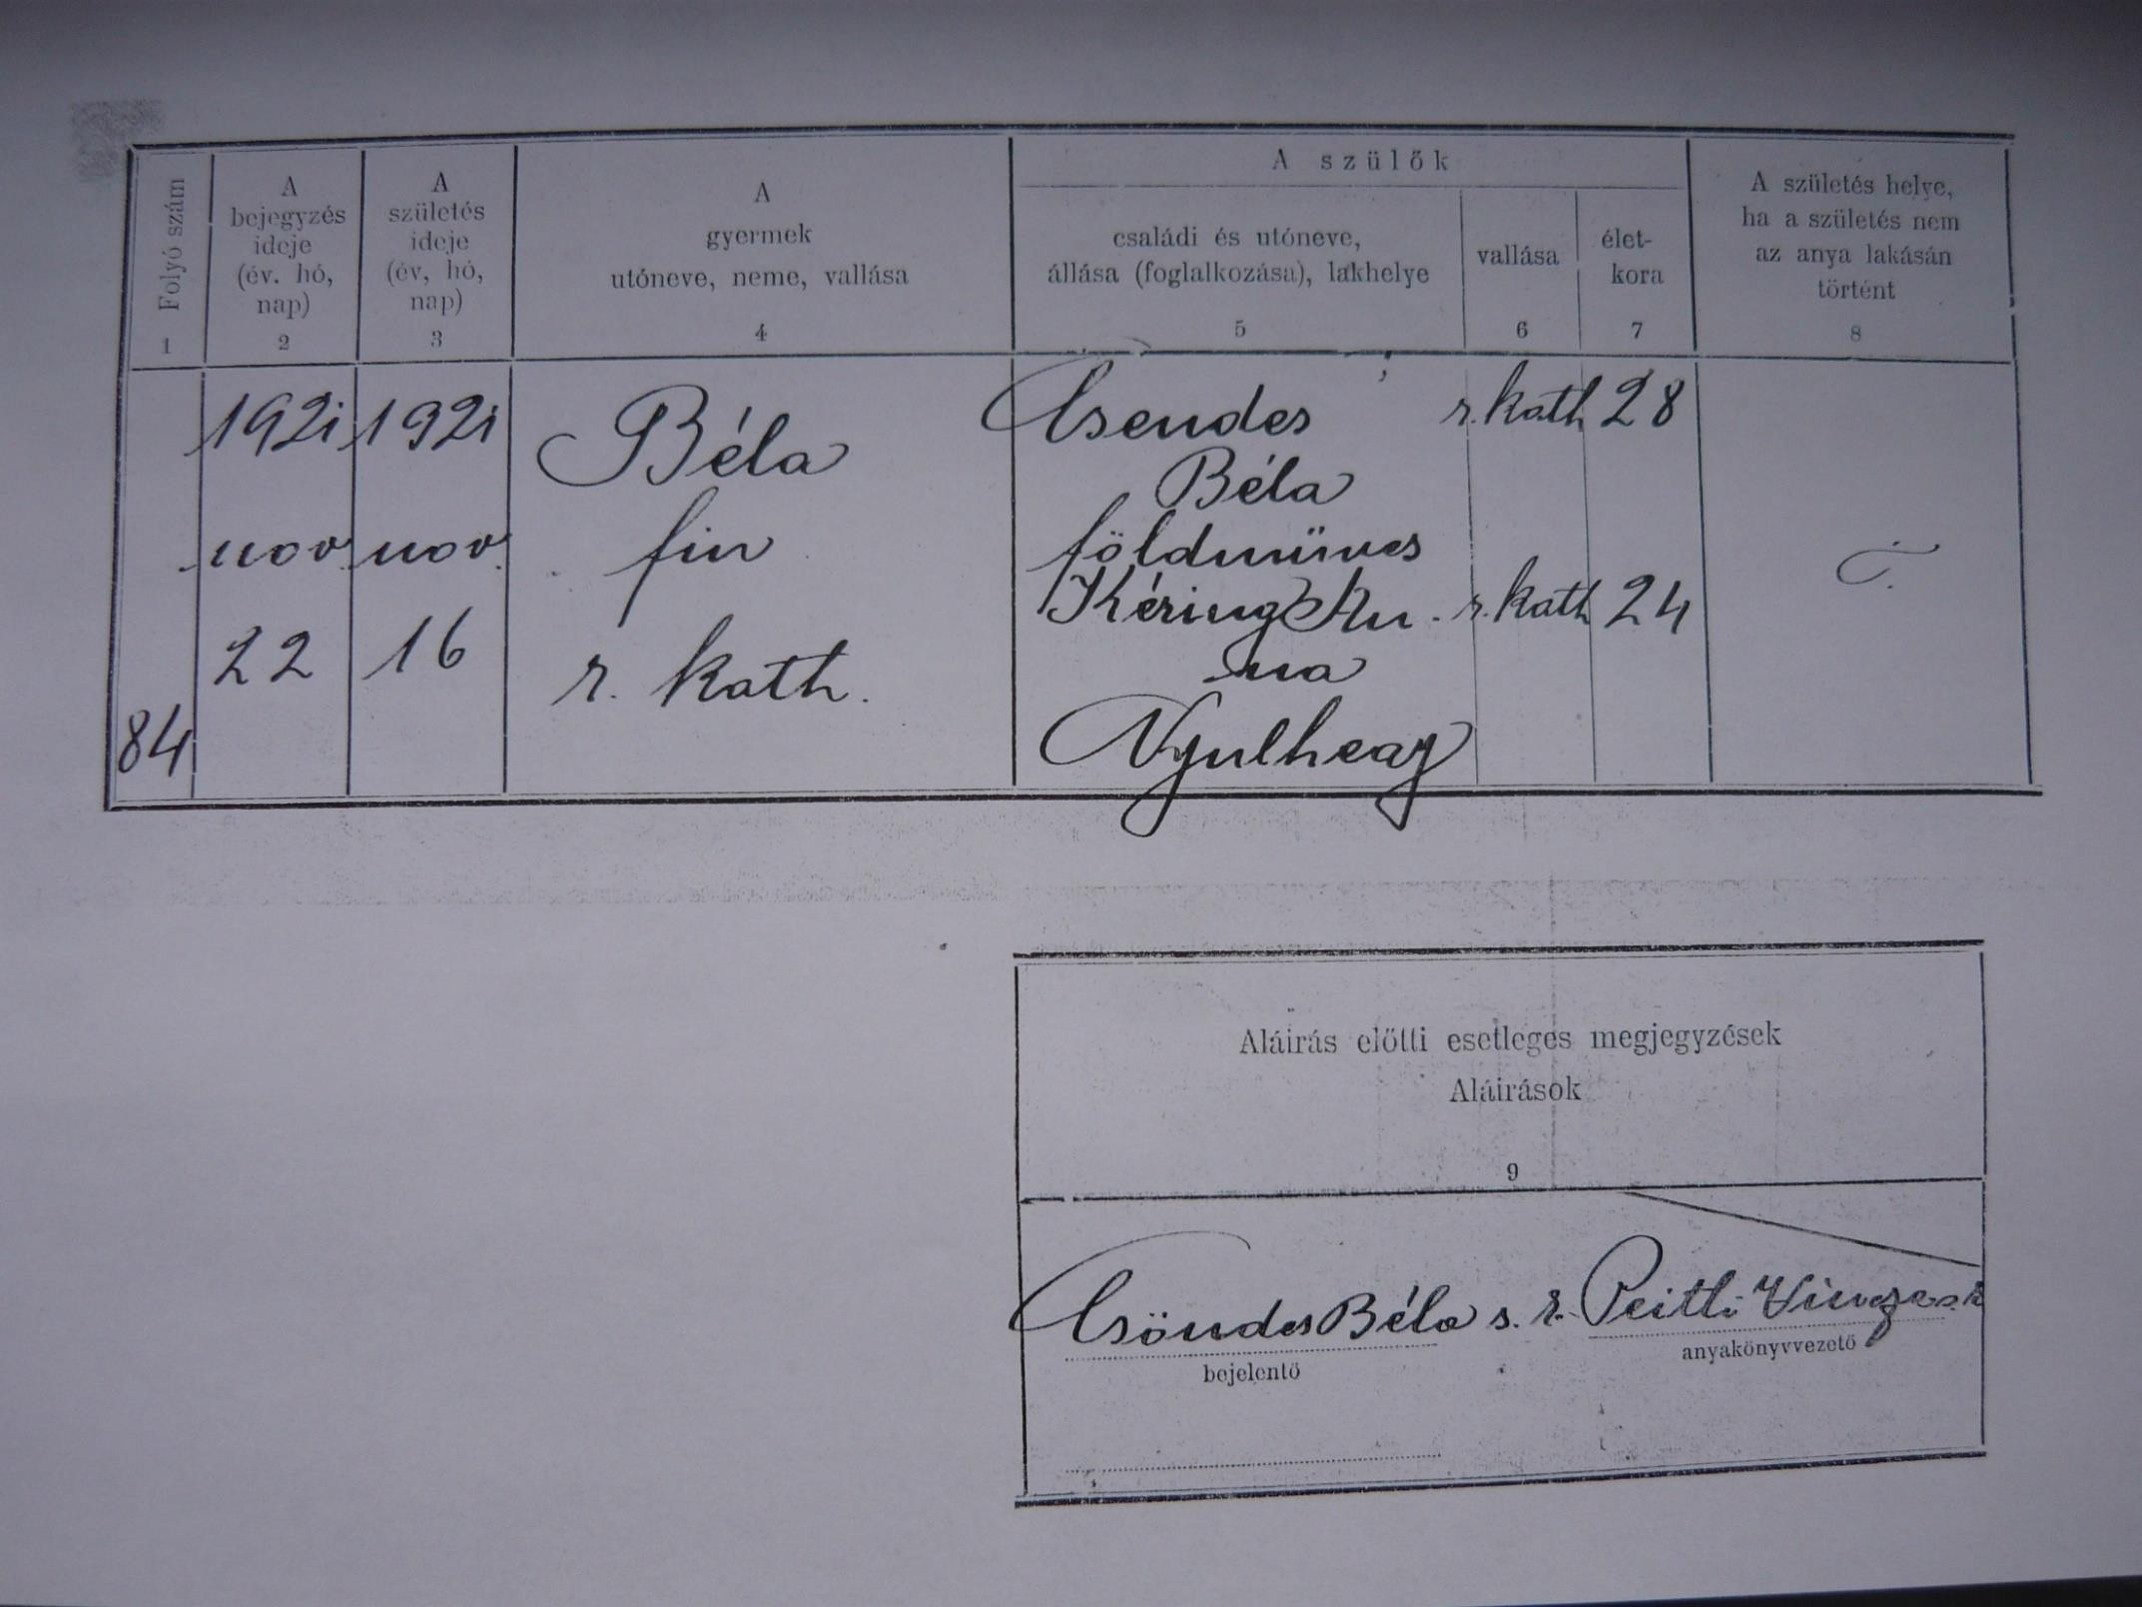 Folyó szám
1
A
bejegyzés
ideje
(év. hó,
nap)
2
A
születés
ideje
(év, hó,
nap)
3
A
gyermek
utóneve, neme, vallása
4
A szülők
családi és utóneve,
állása (foglalkozása), lakhelye
5
vallása
6
élet-
kora
7
A születés helye,
ha a születés nem
az anya lakásán
történt
8
84
1921
nov.
22
1921
nov.
16
Béla
fiu
r. kath.
Csendes
Béla
földmüves
Kéring An
na
Nyulhegy
r. kath
r. kath
28
24
Aláirás előtti esetleges megjegyzések
Aláirások
9
Csöndes Béla s. k. Peitli Vincze s. k
bejelentő
anyakönyvvezető